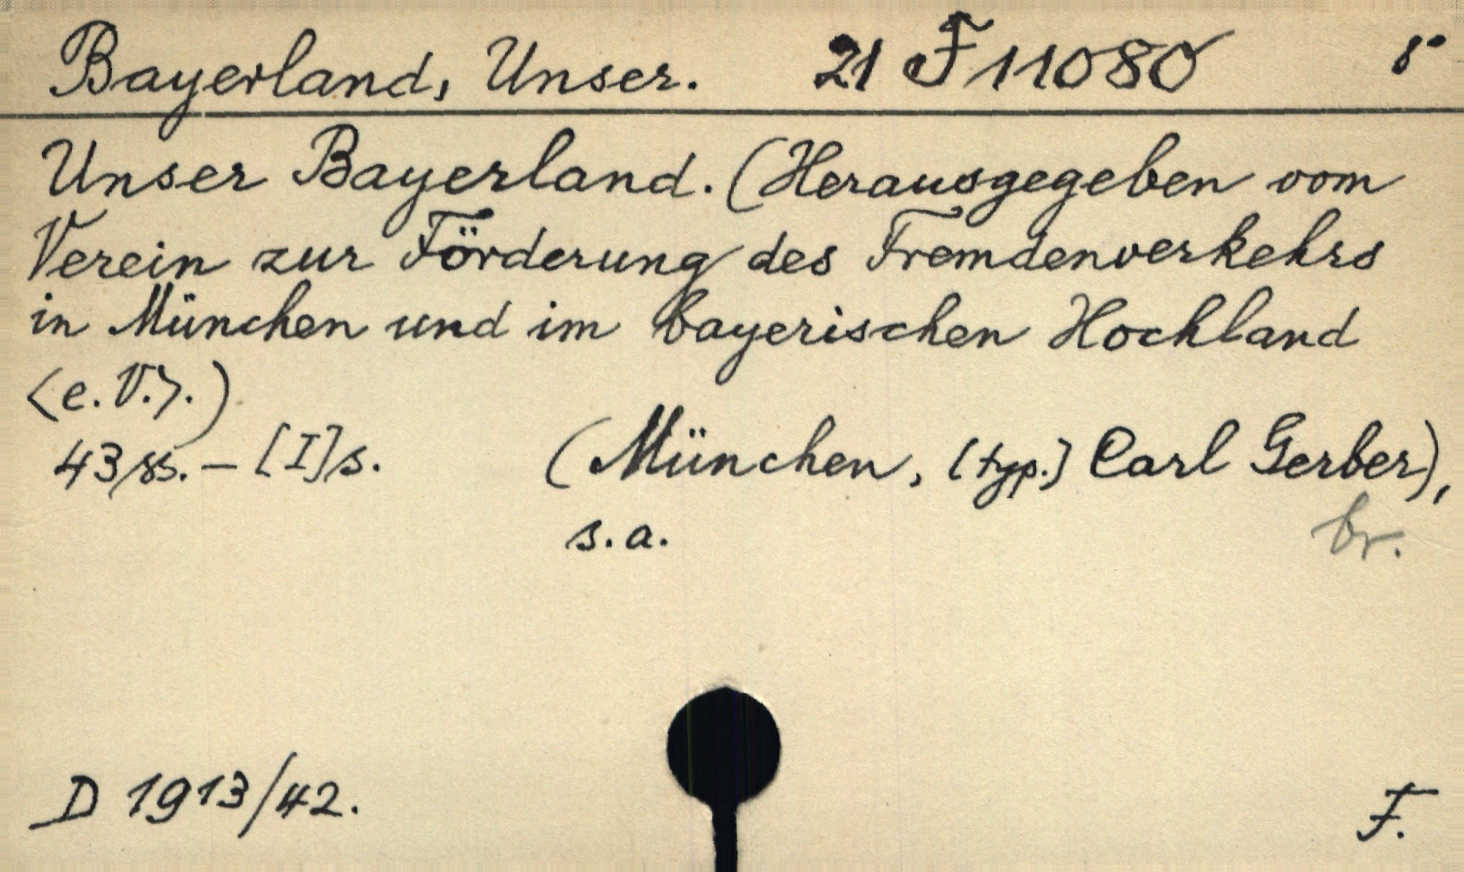 Bayerland, Unser. 21 F 11080 8°
Unser Bayerland. (Herausgegeben vom
Verein zur Förderung des Fremdenverkehrs
in München und im bayerischen Hochland
<e.V.>.)
43 ss. – [I] s. (München, [typ.] Carl Gerber),
s.a.
br.
D 1913/42. F.